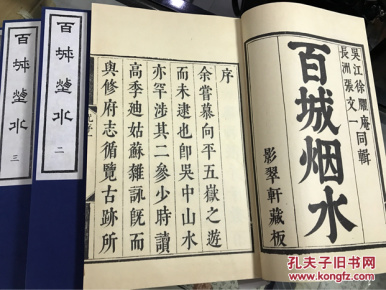 吳江徐臞庵同輯
長洲張文一
百城烟水
影翠軒藏板
序
余嘗慕向平五嶽之遊
而未逮也即吳中山水
亦罕涉其二參少時讀
高季迪姑蘇雜詠既而
與修府志循覽古跡所
百城煙水 二
百城煙水 三
孔夫子旧书网